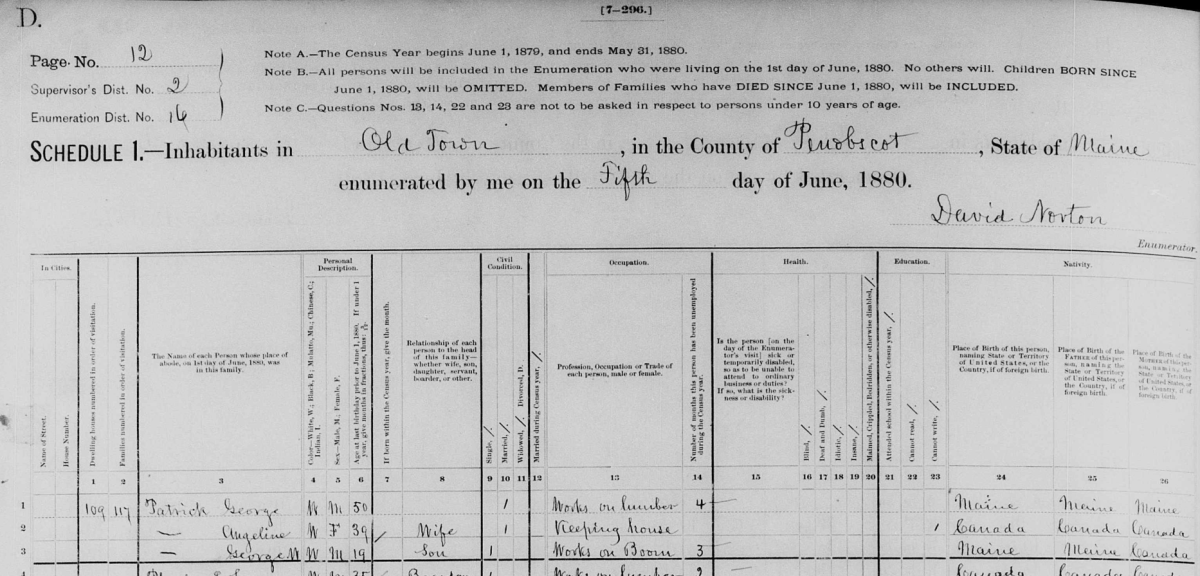 D.
[7-296.]
Page No. 12
Supervisor's Dist. No. 2
Enumeration Dist. No. 16
Note A.—The Census Year begins June 1, 1879, and ends May 31, 1880.
Note B.—All persons will be included in the Enumeration who were living on the 1st day of June, 1880. No others will. Children BORN SINCE
June 1, 1880, will be OMITTED. Members of Families who have DIED SINCE June 1, 1880, will be INCLUDED.
Note C.—Questions Nos. 13, 14, 22 and 23 are not to be asked in respect to persons under 10 years of age.
SCHEDULE 1.—Inhabitants in Old Town, in the County of Penobscot, State of Maine
enumerated by me on the Fifth day of June, 1880.
David Norton
Enumerator.
In Cities.
Name of Street.
House Number.
Dwelling houses numbered in order of visitation.
Families numbered in order of visitation.
The Name of each Person whose place of
abode, on 1st day of June, 1880, was
in this family.
Personal
Description.
Color—White, W.; Black, B.; Mulatto, Mu.; Chinese, C.;
Indian, I.
Sex—Male, M.; Female, F.
Age at last birthday prior to June 1, 1880. If under 1
year, give months in fractions, thus:
If born within the Census year, give the month.
Relationship of each
person to the head
of this family—
whether wife, son,
daughter, servant,
boarder, or other.
Civil
Condition.
Single, /.
Married, /.
Widowed, /. Divorced, D.
Married during Census year, /.
Occupation.
Profession, Occupation or Trade of
each person, male or female.
Number of months this person has been unemployed
during the Census year.
Health.
Is the person [on the
day of the Enumera-
tor's visit] sick or
temporarily disabled,
so as to be unable to
attend to ordinary
business or duties?
If so, what is the sick-
ness or disability?
Blind, /.
Deaf and Dumb, /.
Idiotic, /.
Insane, /.
Maimed, Crippled, Bedridden, or otherwise disabled, /.
Education.
Attended school within the Census year, /.
Cannot read, /.
Cannot write, /.
Nativity.
Place of Birth of this person,
naming State or Territory
of United States, or the
Country, if of foreign birth.
Place of Birth of the
FATHER of this person,
naming the
State or Territory
of United States, or
the Country, if of
foreign birth.
Place of Birth of the
MOTHER of this per-
son, naming the
State or Territory
of United States, or
the Country, if of
foreign birth.
1 2 3 4 5 6 7 8 9 10 11 12 13 14 15 16 17 18 19 20 21 22 23 24 25 26
1 109 117 Patrick George W M 50 / Works on lumber 4 — Maine Maine Maine
2 — Angeline W F 39 / Wife / Keeping house / Canada Canada Canada
3 — George W W M 19 Son / Works on Boom 3 Maine Maine Canada